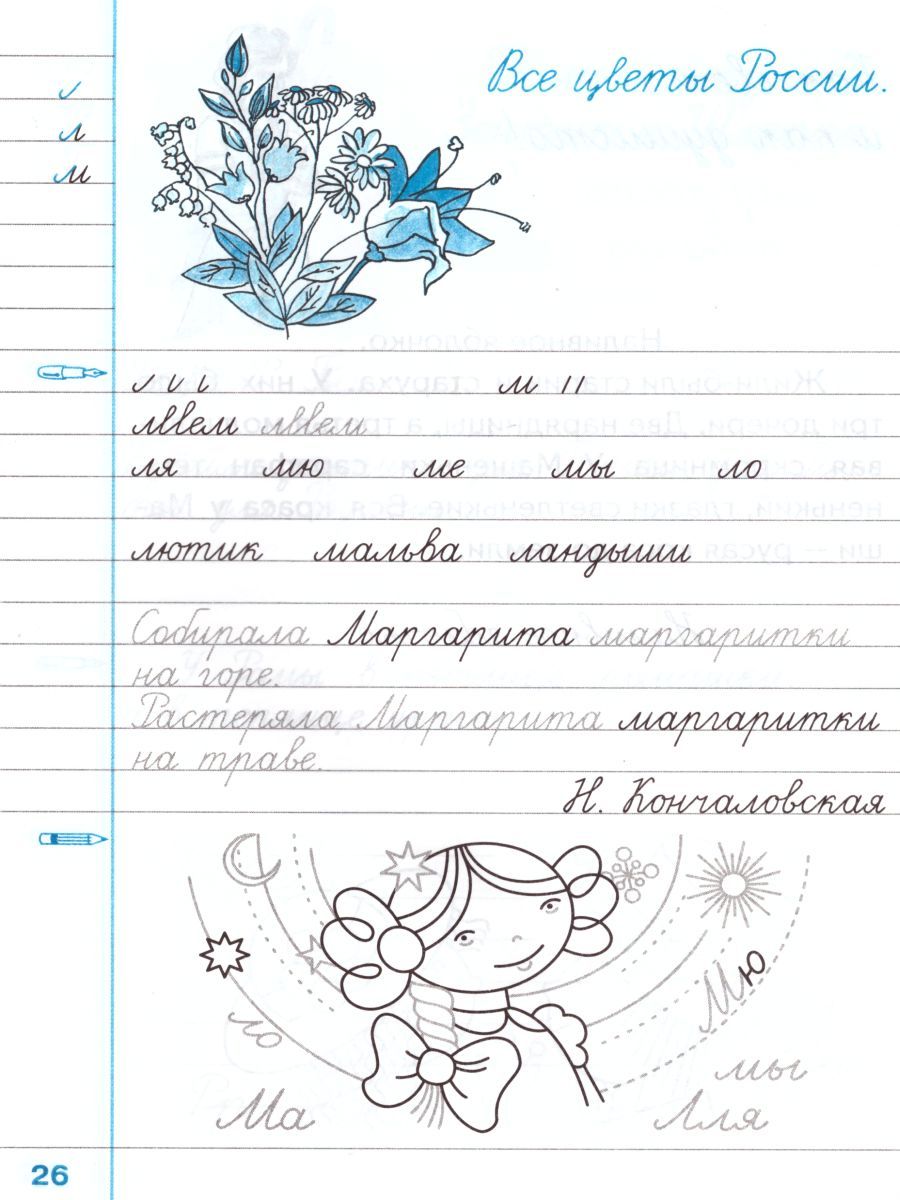 Все цветы России.
л
м
м ı м ıı
лввем лввем
ля мю ме мы ло
лютик мальва ландыши
Собирала Маргарита маргаритки
на горе.
Растеряла Маргарита маргаритки
на траве.
Н. Кончаловская
Мю
ло
мы
Ма Ляля
26